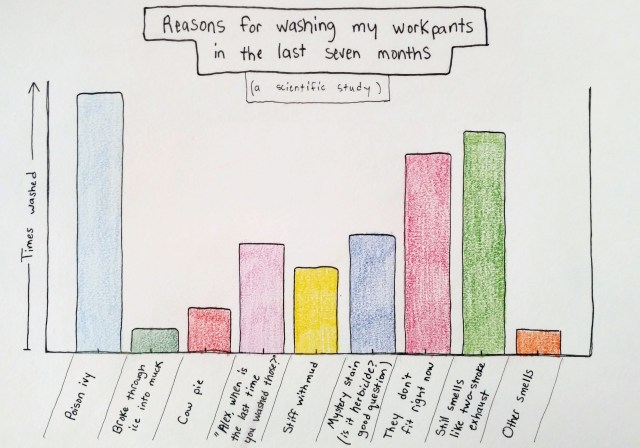 Reasons for washing my workpants
in the last seven months
(a scientific study)
Times washed
Poison ivy
Broke through
ice into muck
Cow pie
"Alex, when is
the last time
you washed those?"
Stiff with mud
Mystery stain
(is it herbicide?
good question)
They don't
fit right now
Still smells
like two-stroke
exhaust
Other smells